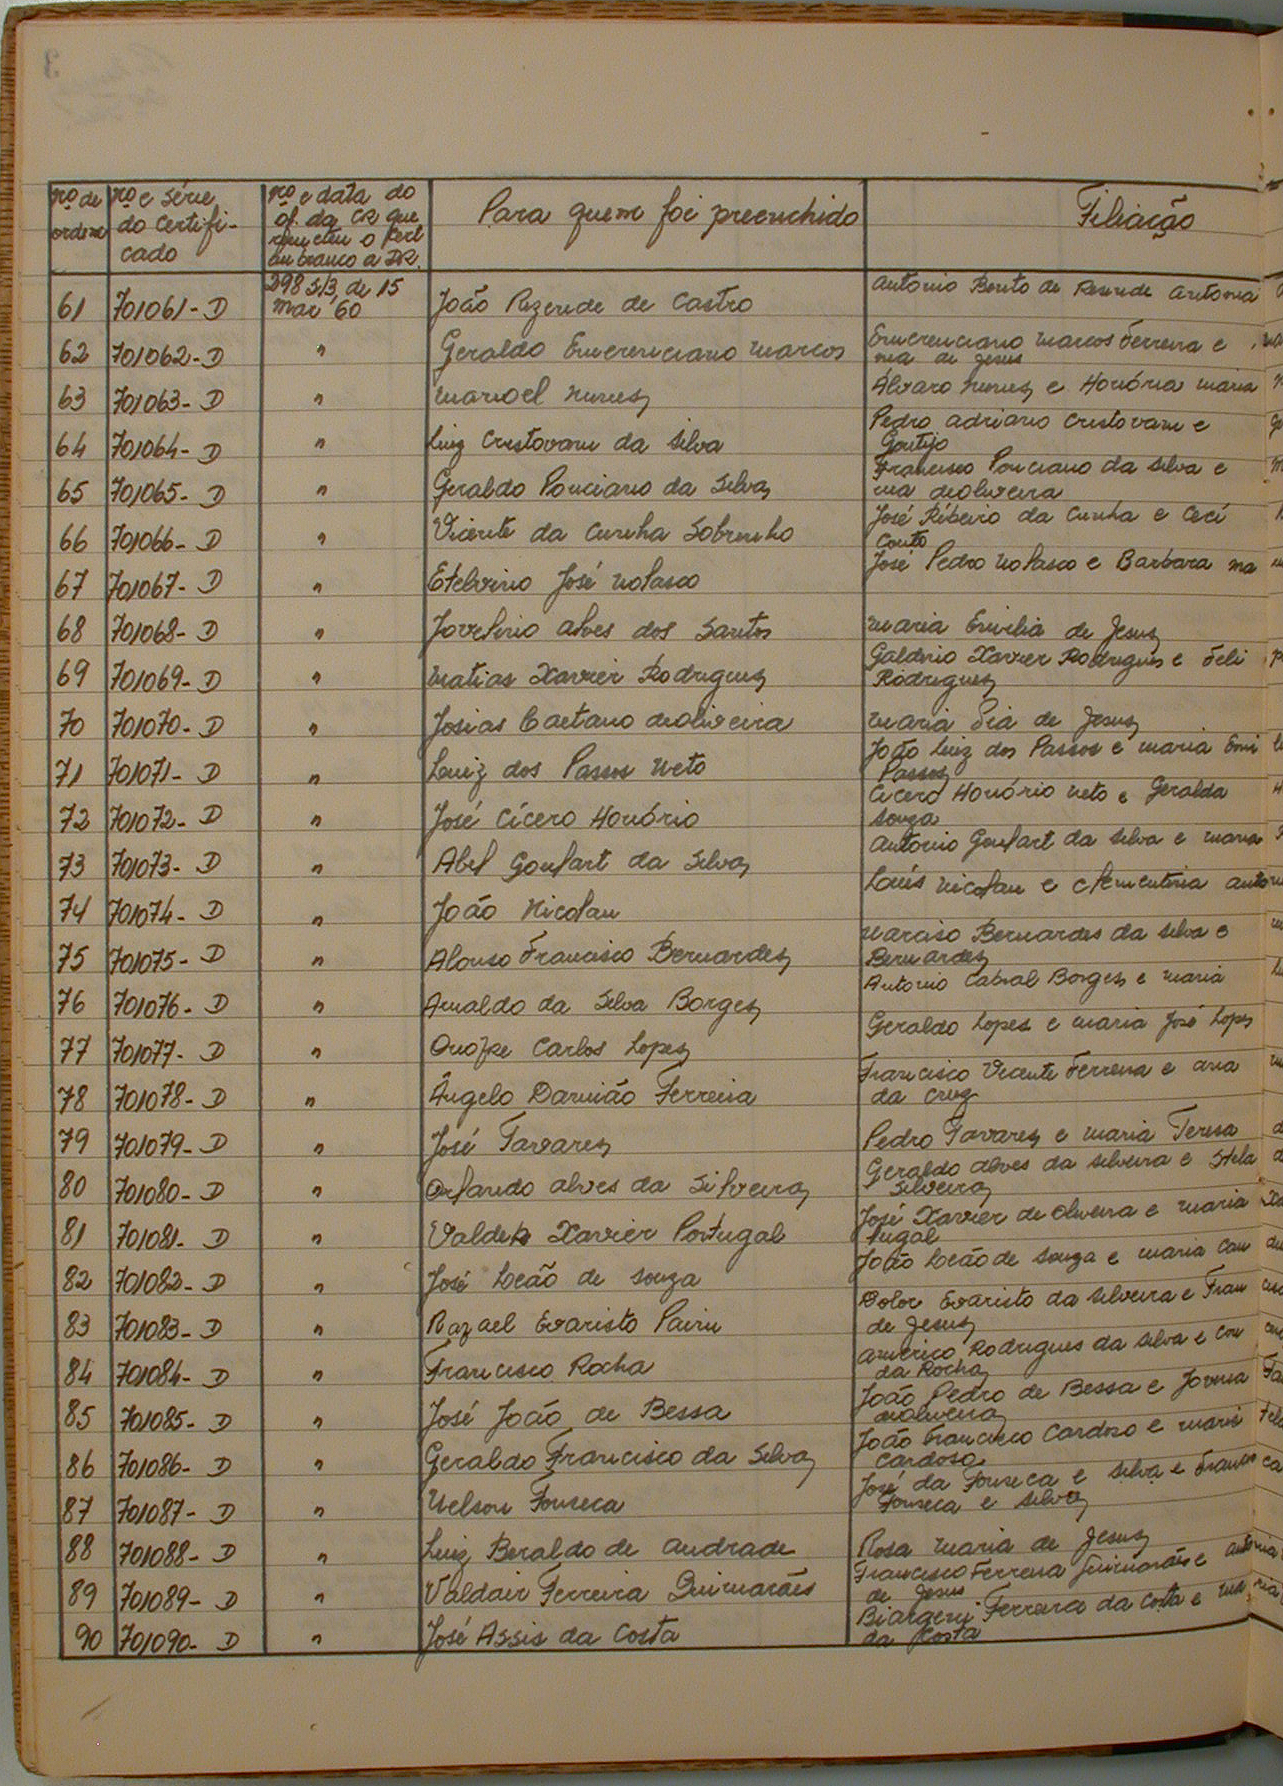 nº de ordem
nº e série do certificado
nº e data do of. da CR que remeteu o cert em branco a DR.
Para quem foi preenchido
Filiação
61 701061-D 298 S/3 de 15 Mar 60 João Rezende de Castro Antonio Bento de Resende Antonia
62 701062-D " Geraldo Emerenciano Marcos Emerenciano Marcos Ferreira e
ria de Jesus
63 701063-D " Manoel Nunes Álvaro Nunes e Honória Maria
64 701064-D " Luiz Cristovam da Silva Pedro Adriano Cristovam e
Gontijo
65 701065-D " Geraldo Ponciano da Silva Francisco Ponciano da Silva e
ria de Oliveira
66 701066-D " Vicente da Cunha Sobrinho José Ribeiro da Cunha e Ceci
Couto
67 701067-D " Etelvino José Nolasco José Pedro Nolasco e Barbara ma
68 701068-D " Jovelino Alves dos Santos Maria Emilia de Jesus
69 701069-D " Matias Xavier Rodrigues Galdino Xavier Rodrigues e Feli
Rodrigues
70 701070-D " Josias Caetano de Oliveira Maria Sia de Jesus
71 701071-D " Luiz dos Passos Neto João Luiz dos Passos e Maria Emi
Passos
72 701072-D " José Cícero Honório Cicero Honório Neto e Geralda
Souza
73 701073-D " Abel Goulart da Silva Antonio Goulart da Silva e Maria
74 701074-D " João Nicolau Luis Nicolau e Clementina
75 701075-D " Alonso Francisco Bernardes Narciso Bernardes da Silva e
Bernardes
76 701076-D " Arnaldo da Silva Borges Antonio Cabral Borges e Maria
77 701077-D " Onofre Carlos Lopes Geraldo Lopes e Maria José Lopes
78 701078-D " Ângelo Damião Ferreira Francisco Vicente Ferreira e Ana
da Cruz
79 701079-D " José Tavares Pedro Tavares e Maria Teresa
80 701080-D " Orlando Alves da Silveira Geraldo Alves da Silveira e Stela
Silveira
81 701081-D " Xavier Portugal José Xavier de Oliveira e Maria
tugal
82 701082-D " José Leão de Souza João Leão de Souza e Maria Can
83 701083-D " Rafael Evaristo Evaristo da Silveira e Fran
de Jesus
84 701084-D " Francisco Rocha Américo Rodrigues da Silva e Con
da Rocha
85 701085-D " José João de Bessa João Pedro de Bessa e
de Oliveira
86 701086-D " Geraldo Francisco da Silva João Francisco Cardoso e Maria
Cardoso
87 701087-D " Nelson Fonseca José da Fonseca e Silva e
Fonseca e Silva
88 701088-D " Luiz Beraldo de Andrade Rosa Maria de Jesus
89 701089-D " Valdair Ferreira Guimarães Francisco Ferreira Guimarães e
de Jesus
90 701090-D " José Assis da Costa Ferreira da Costa e
da Costa